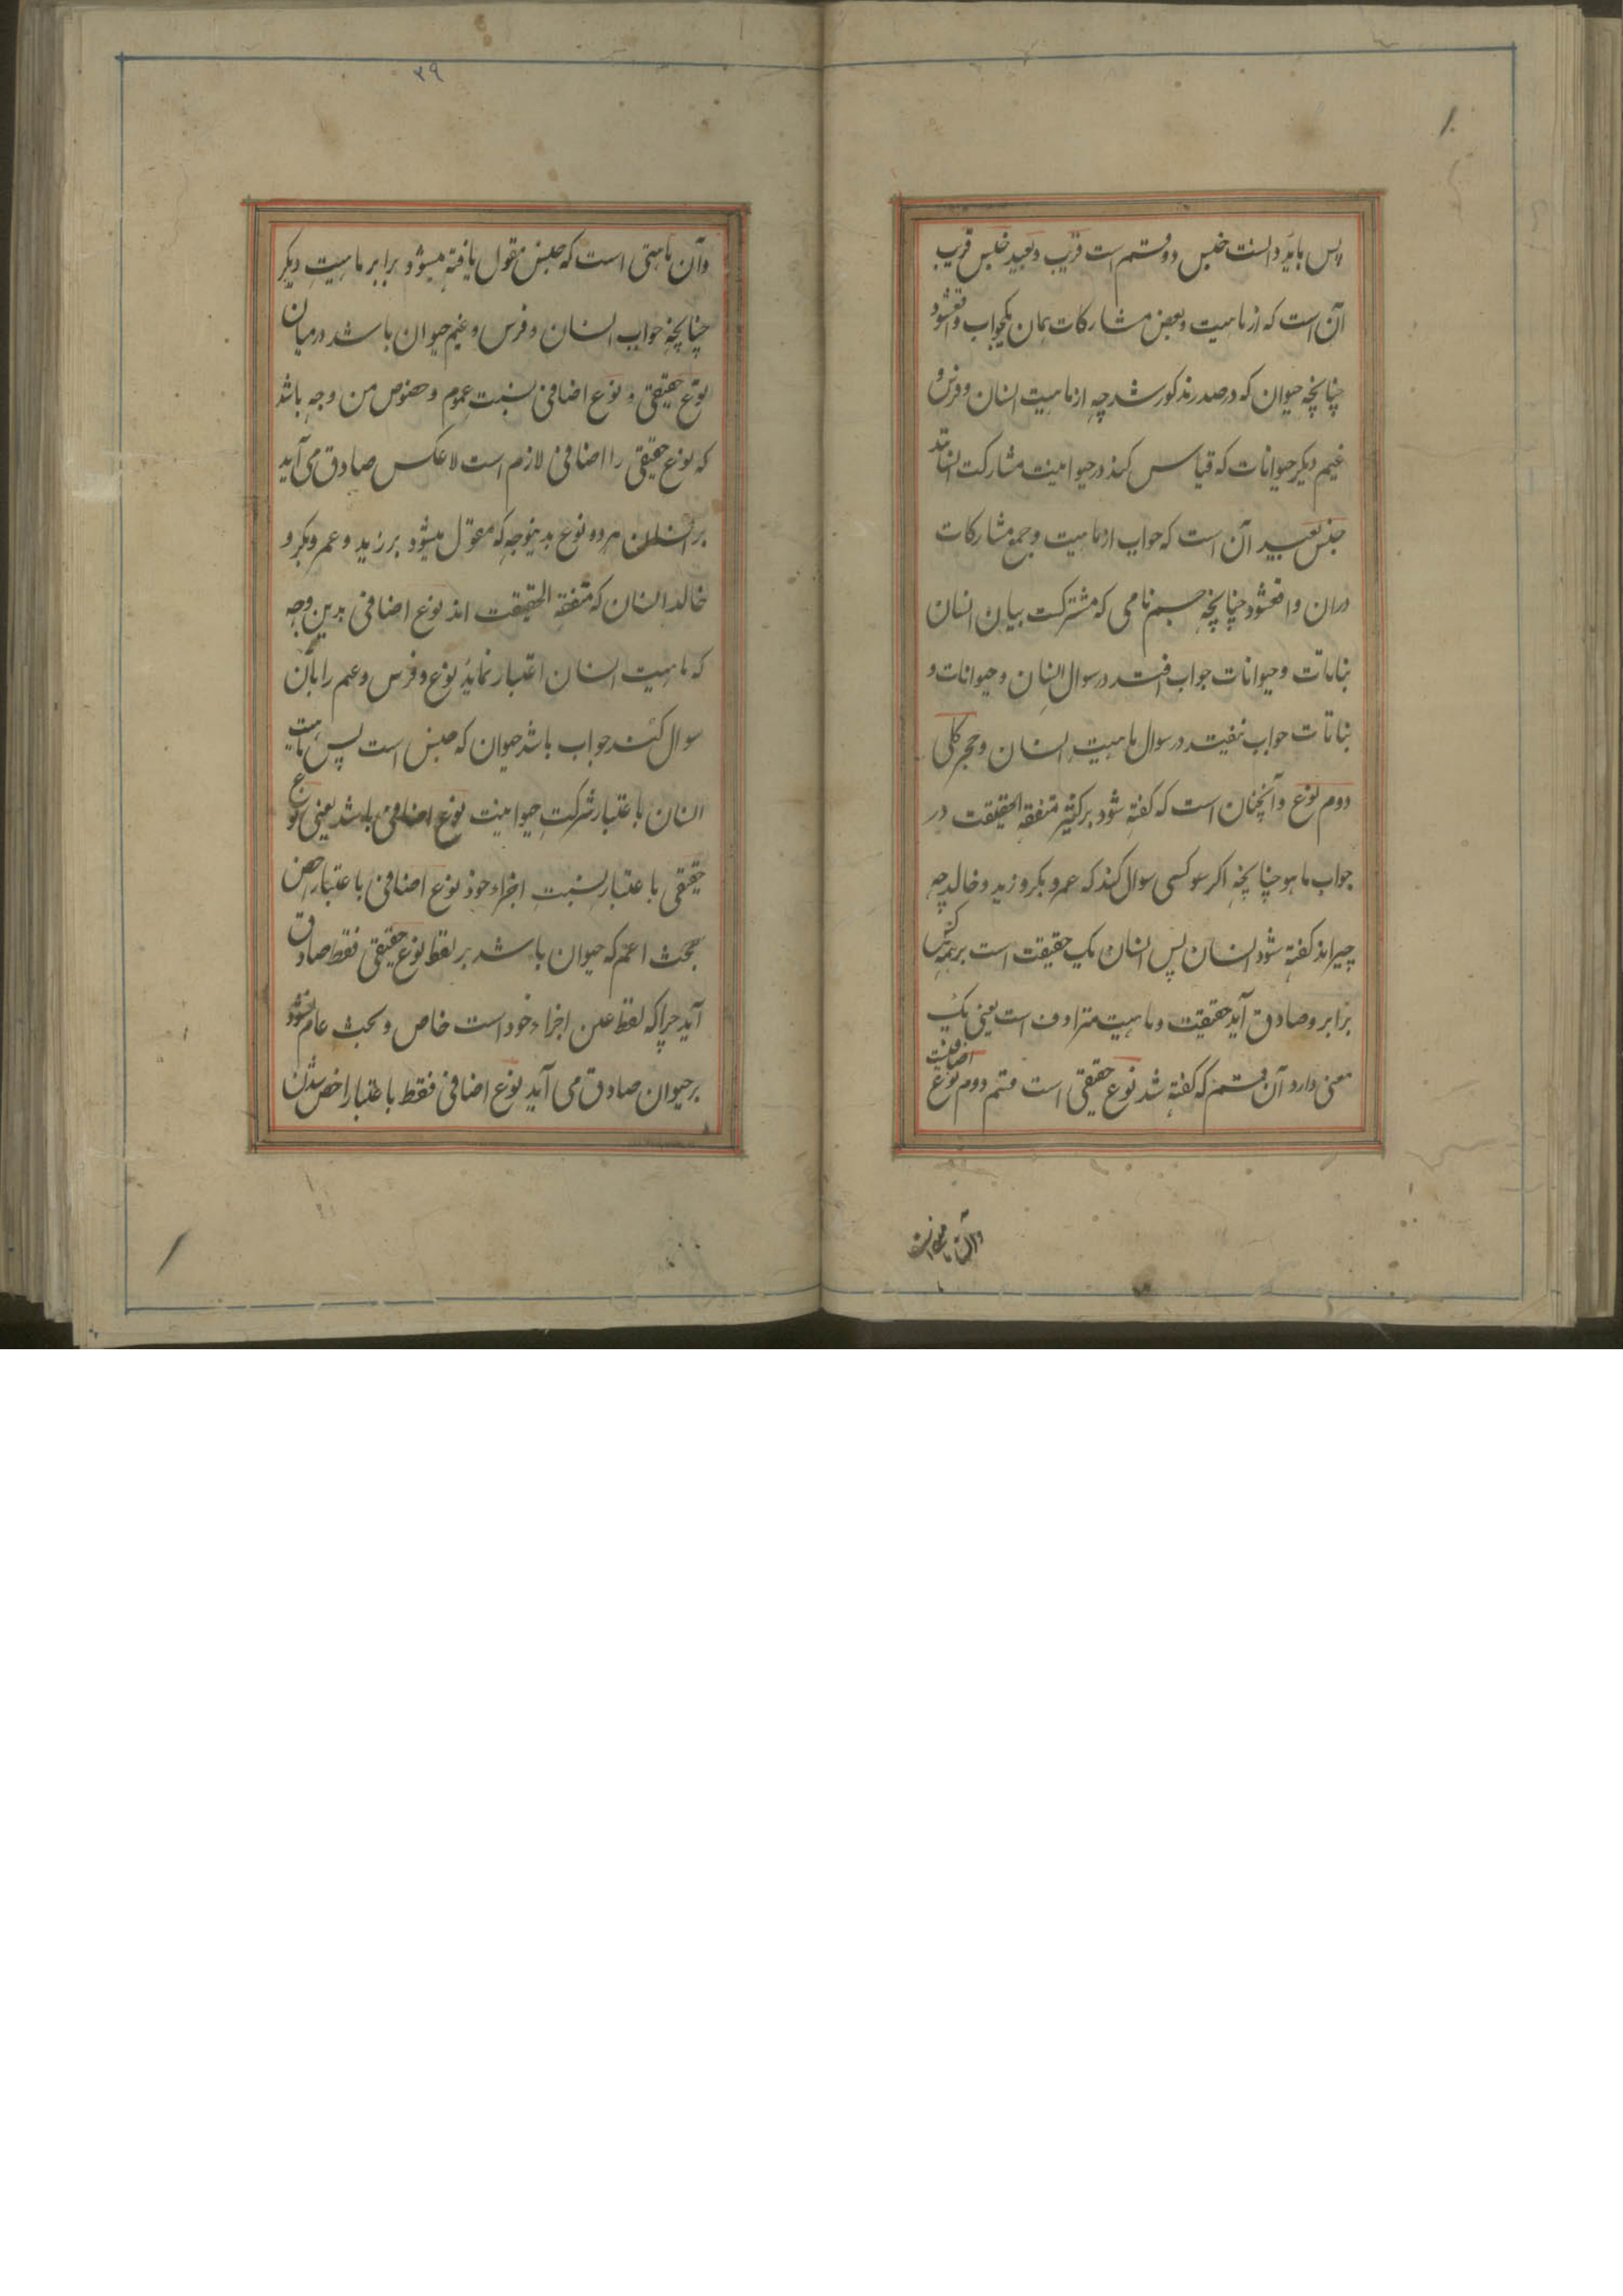 ۱۰
پس باید دانست جنس دو قسم است قریب و بعید جنس قریب
آن است که از ماهیت و بعض مشارکات همان یکجواب واقعشود
چنانچه حیوان که در صدر مذکور شد چه از ماهیت انسان و فرس و
غنم دیگر حیوانات که قیاس کنند در حیوانیت مشارکت
جنس بعید آن است که جواب از ماهیت و جمع مشارکات
دران واقعشود چنانچه جسم نامی که مشترکست بیان انسان
نباتات و حیوانات جواب افتد در سوال انسان و حیوانات و
نباتات جواب نیفتد در سوال ماهیت انسان و حجر کلی
دوم نوع و آنچنان است که گفته شود بر کثیر متفقه الحقیقت در
جواب ما هو چنانچه اگر سو کسی سوال کند که عمرو بکر و زید و خالد چه
چیز اند گفته شود انسان پس انسان یک حقیقت است بر همه
برابر و صادق آید حقیقت و ماهیت مترادف است یعنی یک
معنی دارد آن قسم که گفته شد نوع حقیقی است قسم دوم نوع اضافیست
وآن ماهیتی است
۳۹
وآن ماهیتی است که جنس مقول یافته میشود برابر ماهیت دیگر
چنانچه جواب انسان و فرس و غنم حیوان باشد درمیان
نوع حقیقی و نوع اضافی نسبت عموم و خصوص من وجه باشد
که نوع حقیقی را اضافی لازم است لا عکس صادق می آید
بر انسان هر دو نوع بدینوجه که مقول میشود بر زید و عمرو بکر و
خالد انسان که متفقه الحقیقت اند نوع اضافی بدین وجه
که ماهیت انسان اعتبار نماید نوع و فرس و غنم را بآن
سوال کنند جواب باشد حیوان که جنس است پس ماهیت
انسان باعتبار شرکت حیوانیت نوع اضافی باشد یعنی نوع
حقیقی باعتبار نسبت اجزاء خود نوع اضافی باعتبار اخص
بحث اعم که حیوان باشد بر لفظ نوع حقیقی فقط صادق
آید چرا که لفظ عین اجزاء خود است خاص و بحث عام نشود
بر حیوان صادق می آید نوع اضافی فقط باعتبار اخص بودن